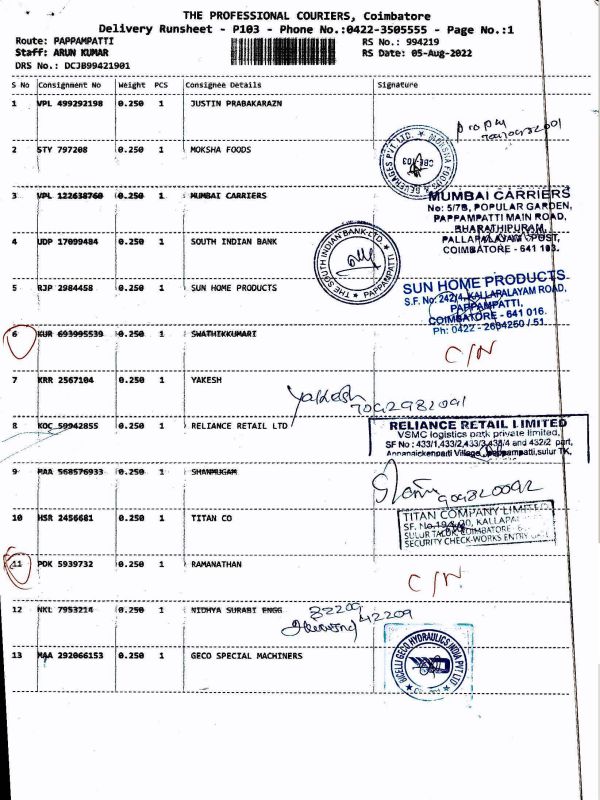 THE PROFESSIONAL COURIERS, Coimbatore
Delivery Runsheet - P103 - Phone No.:0422-3505555 - Page No.:1
Route: PAPPAMPATTI RS No.: 994219
Staff: ARUN KUMAR RS Date: 05-Aug-2022
DRS No.: DCJB99421901
S No Consignment No Weight PCS Consignee Details Signature
1 VPL 499292198 0.250 1 JUSTIN PRABAKARAZN
2 STY 797208 0.250 1 MOKSHA FOODS
MOKSHA FOODS & BEVERAGES PVT. LTD.
CBE
3 VPL 122638760 0.250 1 MUMBAI CARRIERS
MUMBAI CARRIERS
No: 5/7B, POPULAR GARDEN,
PAPPAMPATTI MAIN ROAD,
BHARATHIPURAM,
PALLAPALAYAM POST,
COIMBATORE - 641 103.
4 UDP 17099484 0.250 1 SOUTH INDIAN BANK
THE SOUTH INDIAN BANK LTD. PAPPAMPATTI
5 RJP 2984458 0.250 1 SUN HOME PRODUCTS
SUN HOME PRODUCTS
S.F. No: 242/4, KALLAPALAYAM ROAD,
PAPPAMPATTI,
COIMBATORE - 641 016.
Ph: 0422 - 2604250 / 51.
6 KUR 693995539 0.250 1 SWATHIKKUMARI
C/N
7 KRR 2567104 0.250 1 YAKESH
Yakesh
7092982091
8 KOC 59942855 0.250 1 RELIANCE RETAIL LTD
RELIANCE RETAIL LIMITED
VSMC logistics park private limited,
SF No : 433/1,433/2,433/3,435/4 and 432/2 part,
Appanaickenpatti Village, pappampatti,sulur TK,
9 MAA 568576933 0.250 1 SHANMUGAM
909820092
10 HSR 2456681 0.250 1 TITAN CO
TITAN COMPANY LIMITED
SF. No. KALLAPA
SULUR TALUK, COIMBATORE
SECURITY CHECK-WORKS ENTRY
11 PDK 5939732 0.250 1 RAMANATHAN
C/N
12 NKL 7953214 0.250 1 NIDHYA SURABI ENGG
82209
42209
13 MAA 292066153 0.250 1 GECO SPECIAL MACHINERS
GECO HYDRAULICS INDIA PVT LTD